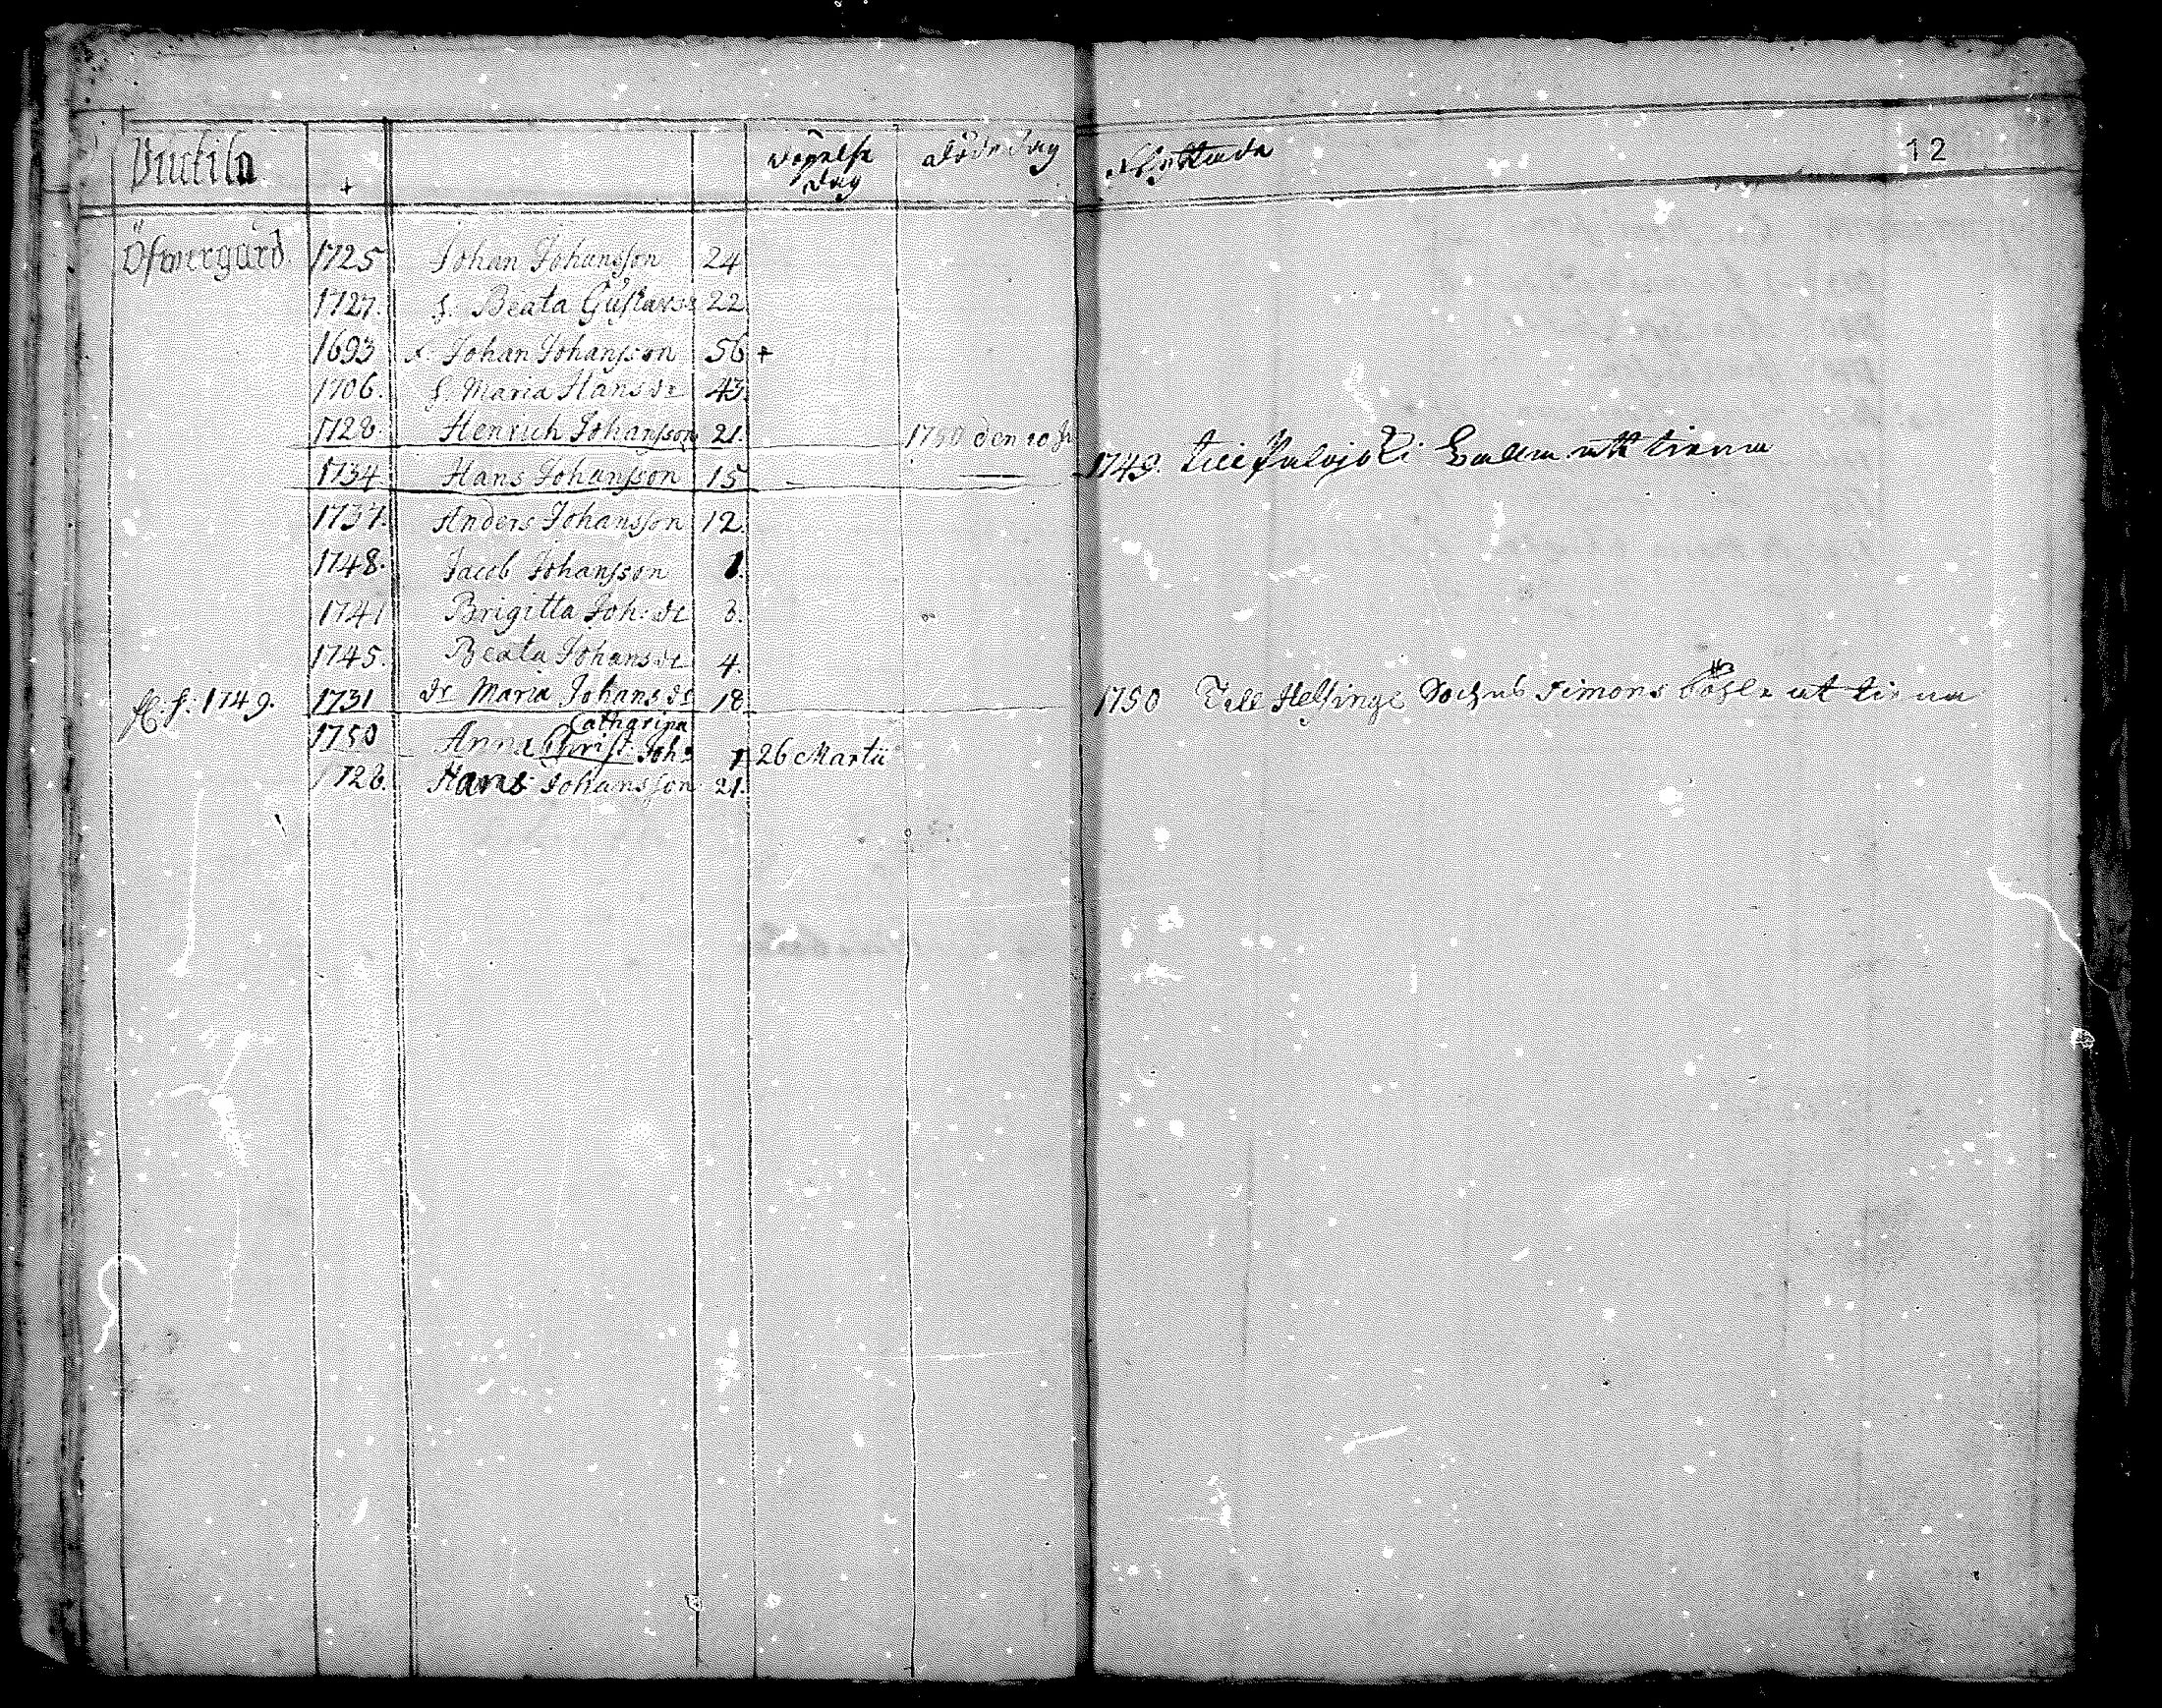 Viuckila + Döpelse dag Dödedag Flyttade 12
Öfwergård 1725 Johan Johansson 24
1727. h. Beata Gustavsdr 22
1693 Johan Johansson 56 +
1706. h. Maria Hansdr 43.
1728. Henrich Johansson 21. 1750 den 20
1734 Hans Johansson 15 — 1749. till att tiena
1737. Anders Johansson 12.
1748. Jacob Johansson 1.
1741 Brigitta Joh: dr 8.
1745. Beata Johansdr 4.
1749. 1731 dr Maria Johansdr 18 1750 Till Helsinge Sochn Simons att tiena
Catharina
1750 Anna Christ. Joh: 1 26 Martii
1728. Hans Johansson 21.